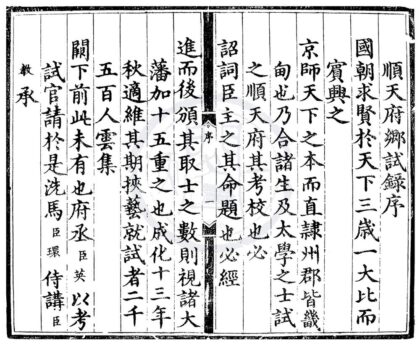 順天府鄉試録序
國朝求賢於天下三歲一大比而
賓興之
京師天下之本而直隸州郡皆畿
甸也乃合諸生及太學之士試
之順天府其考校也必
詔詞臣主之其命題也必經
序
一
進而後頒其取士之數則視諸大
藩加十五重之也成化十三年
秋適維其期挾藝就試者二千
五百人雲集
闕下前此未有也府丞臣英以考
試官請於是洗馬臣環侍講臣
敕承